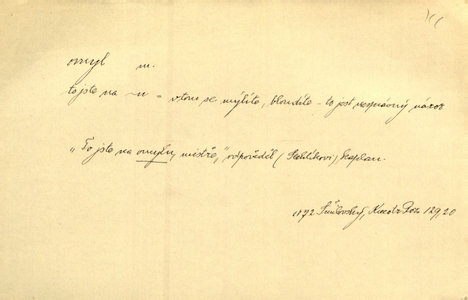 omyl m.
to jste na ~u = v tom se mýlíte, bloudíte – to jest nesprávný názor
"To jste na omylu, mistře," odpověděl (Stehlíkovi) kaplan.
1872 Šmilovský, 129, 20